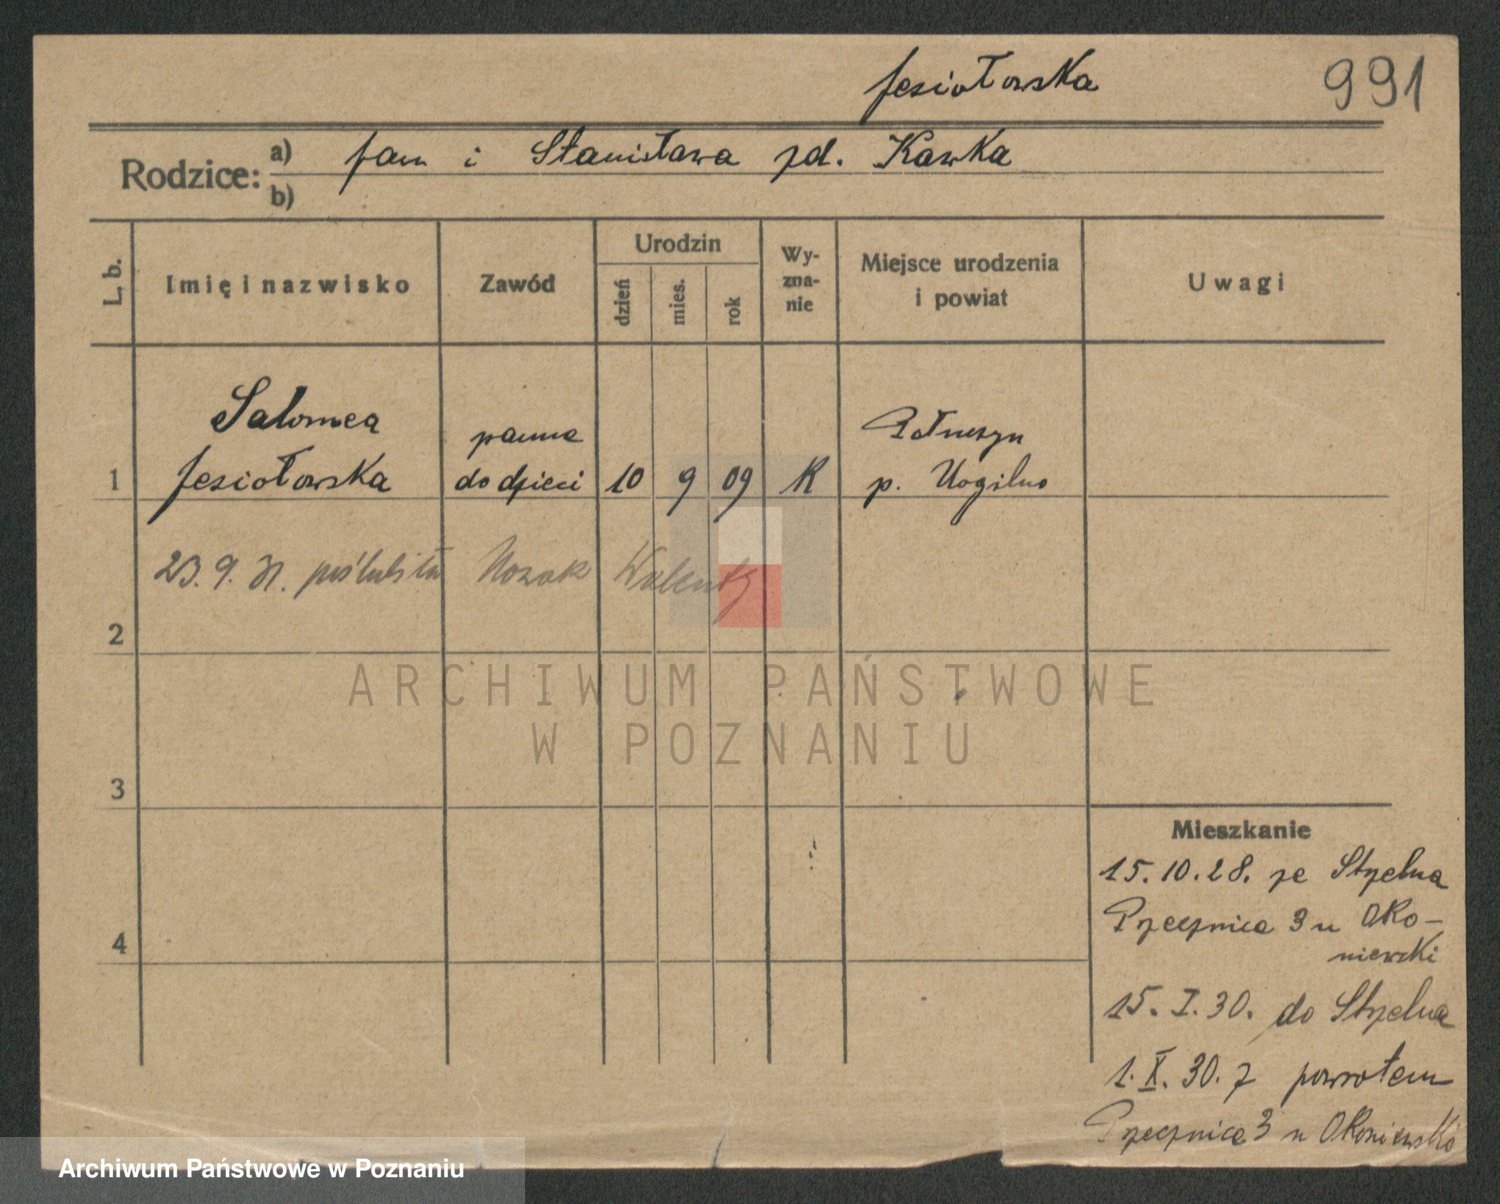 Jesiołowska 991
Rodzice: a) Jan i Stanisława zd. Kawka
b)
L. b. Imię i nazwisko Zawód Urodzin dzień mies. rok Wyznanie Miejsce urodzenia i powiat Uwagi
Salomea panna
1 Jesiołowska do dzieci 10 9 09 K p. Mogilno
23. 9. 31. poślubiła Nozak Walenty
2
ARCHIWUM PAŃSTWOWE
W POZNANIU
3
Mieszkanie
15. 10. 28. ze Strzelna
Przecznica 3 u Oko-
niewski
4
15. I. 30. do Strzelna
1. X. 30. z powrotem
Przecznica 3 u Okoniewski
Archiwum Państwowe w Poznaniu